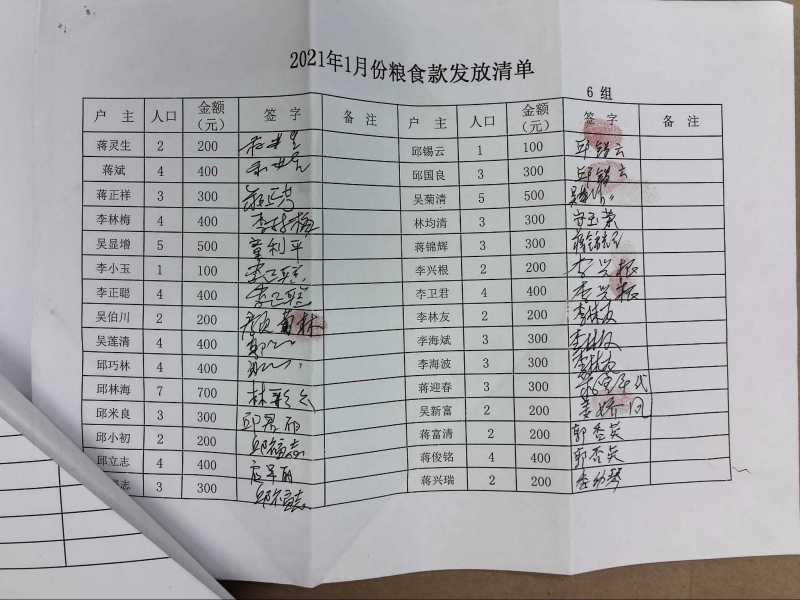 2021年1月份粮食款发放清单
6 组
户 主 人口 金额（元） 签 字 备 注 户 主 人口 金额（元） 签 字 备 注
蒋灵生 2 200 邱锡云 1 100 邱锡云
蒋斌 4 400 邱国良 3 300 邱锡云
蒋正祥 3 300 吴菊清 5 500
李林梅 4 400 李林梅 林均清 3 300
吴显增 5 500 童利平 蒋锦辉 3 300
李小玉 1 100 李正聪 李兴根 2 200 李兴根
李正聪 4 400 李正聪 李卫君 4 400 李兴根
吴伯川 2 200 李林友 2 200 李林友
吴莲清 4 400 李海斌 3 300 李林友
邱巧林 4 400 李海波 3 300 李林友
邱林海 7 700 林彩云 蒋迎春 3 300
邱米良 3 300 吴新富 2 200 姜娇凤
邱小初 2 200 邱福志 蒋富清 2 200 郭香英
邱立志 4 400 蒋俊铭 4 400 郭香英
志 3 300 邱福志 蒋兴瑞 2 200 李幼琴